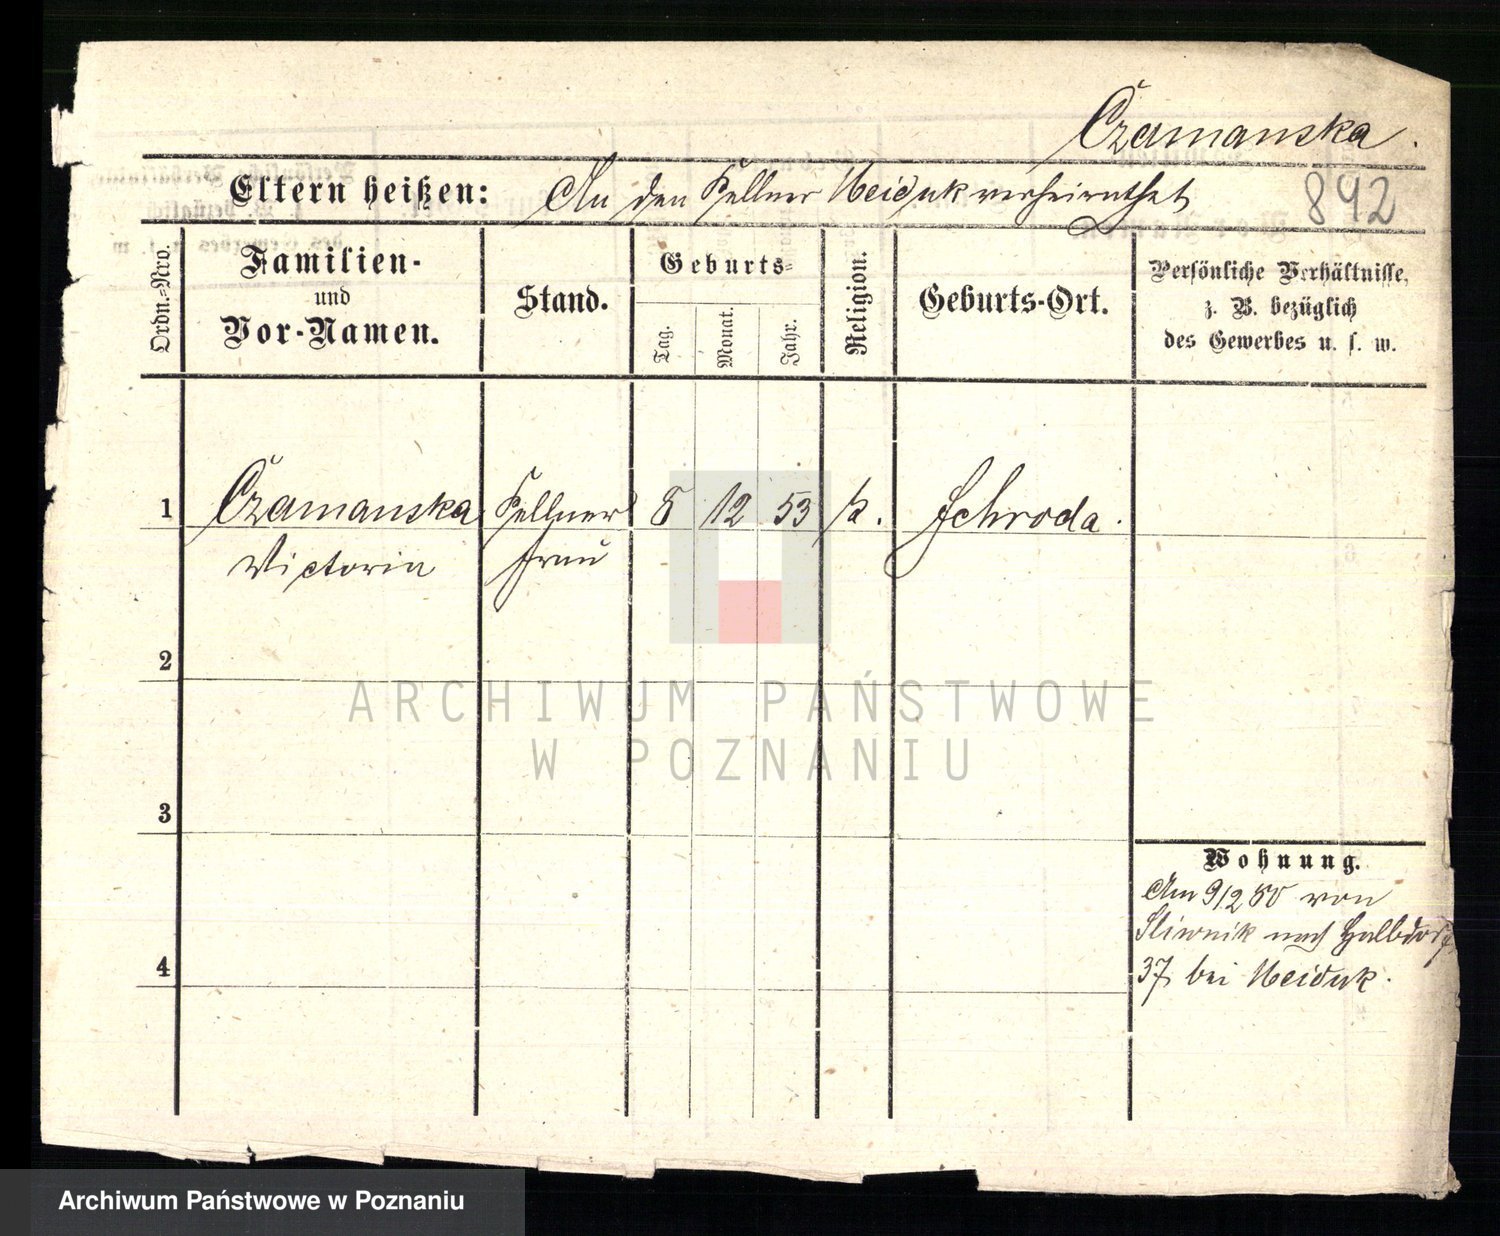 Czamanska.
Eltern heißen: An den Kellner Heiduk verheirathet
892
Ordn.-Nro.
Familien-
und
Vor-Namen.
Stand.
Geburts-
Tag.
Monat.
Jahr.
Religion.
Geburts-Ort.
Persönliche Verhältnisse,
z. B. bezüglich
des Gewerbes u. s. w.
1 Czamanska Kellner 8 12 53 k. Schroda.
Victoria frau
2
ARCHIWUM PAŃSTWOWE
W POZNANIU
3
Wohnung.
Am 9/2 80 von
Sliwnik nach Halbdorf
4
37 bei Heiduk.
Archiwum Państwowe w Poznaniu